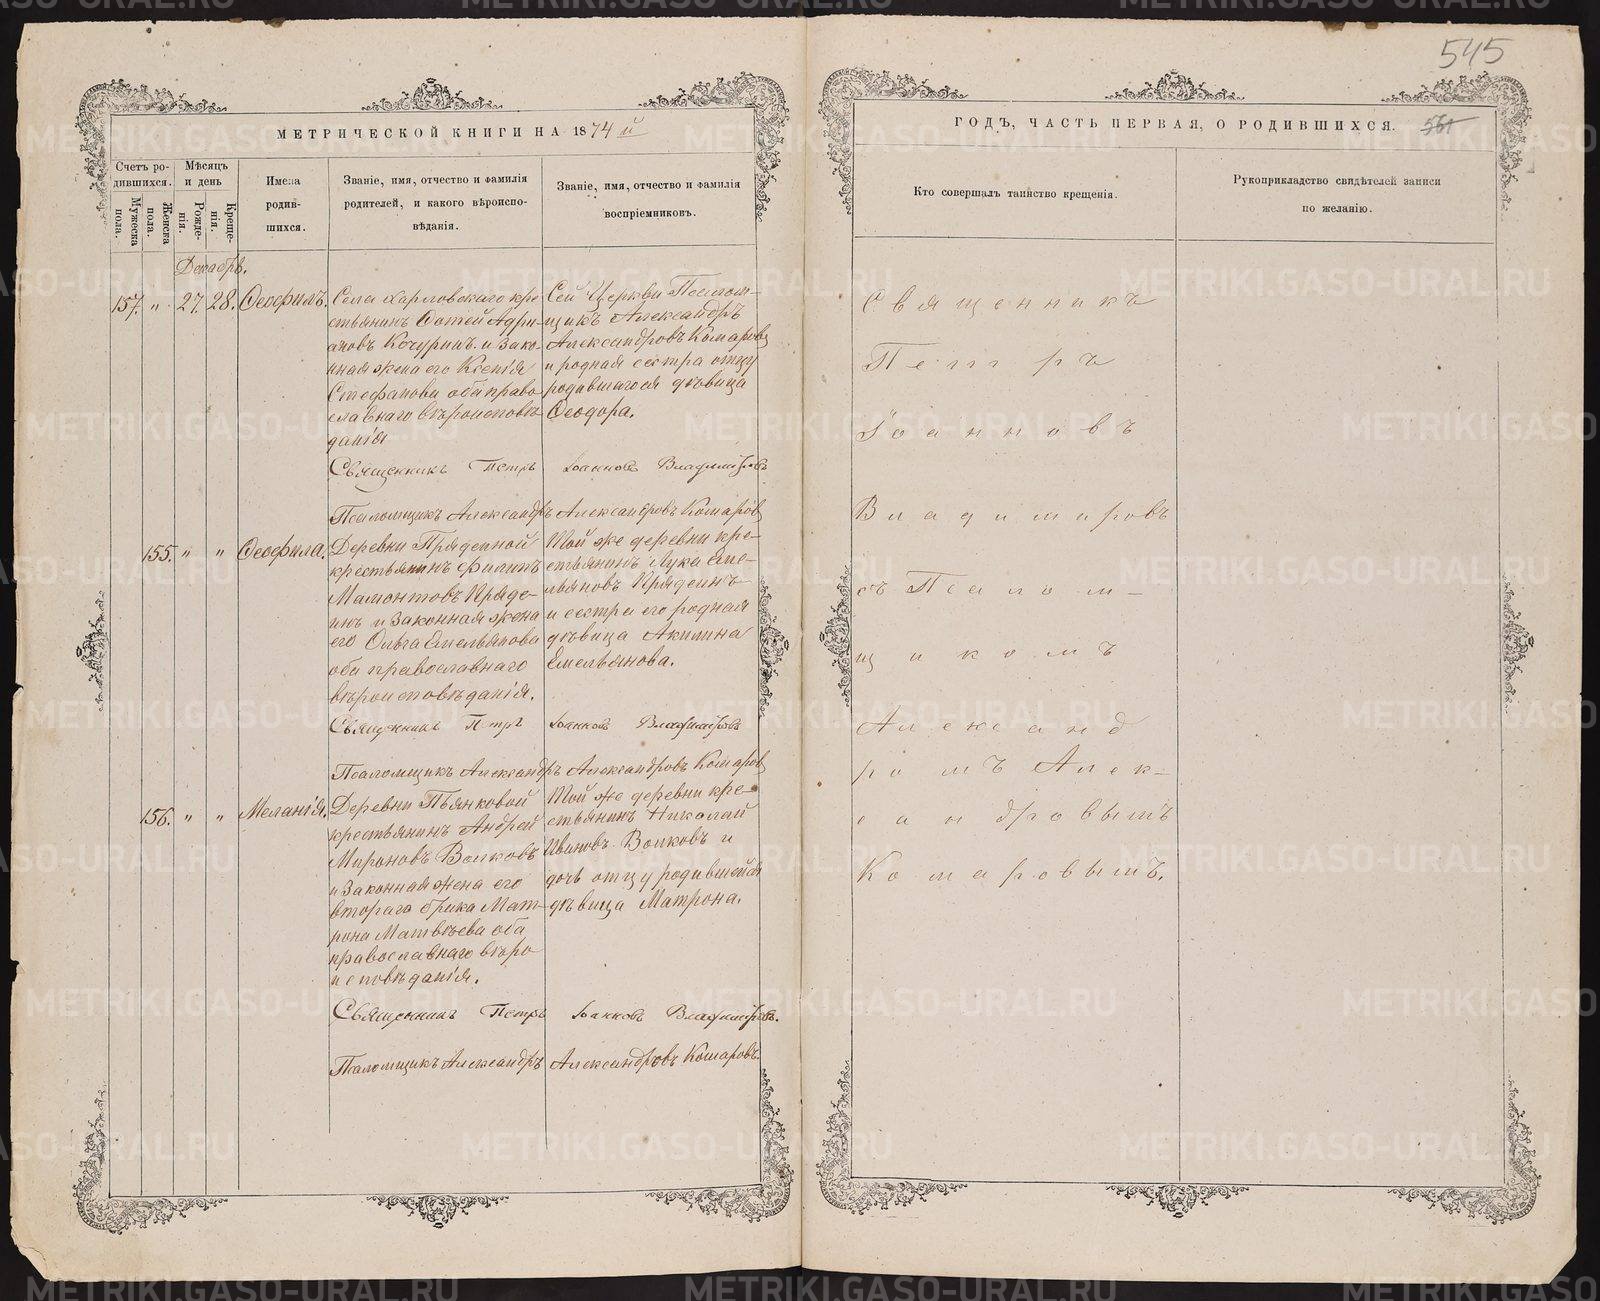 545
МЕТРИЧЕСКОЙ КНИГИ НА 1874 й
ГОДЪ, ЧАСТЬ ПЕРВАЯ, О РОДИВШИХСЯ.
561
Счетъ ро-
дившихся.
Мужеска
пола.
Женска
пола.
Мѣсяцъ
и день
Рожде-
нія.
Креще-
нія.
Имена
родив-
шихся.
Званіе, имя, отчество и фамилія
родителей, и какого вѣроиспо-
вѣданія.
Званіе, имя, отчество и фамилія
воспріемниковъ.
Кто совершалъ таинство крещенія.
Рукоприкладство свидѣтелей записи
по желанію.
Декабрь.
157. " 27. 28. Ѳеофилъ.
Села Харловскаго кре
стьянинъ Фотей Адри-
ановъ Кочуринъ и зако-
нная жена его Ксенія
Стефанова оба право-
славнаго вѣроисповѣ-
данія
Сей Церкви Псалом-
щикъ Александръ
Александровъ Комаровъ
и родная сестра отцу
родившагося дѣвица
Ѳеодора.
Священникъ Петръ Іоанновъ Владиміровъ
Псаломщикъ Александръ Александровъ Комаровъ
155. " " Ѳеофила.
Деревни Прядеиной
крестьянинъ Филипъ
Мамонтовъ Пряде-
инъ и законная жена
его Ольга Емельянова
оба православнаго
вѣроисповѣданія.
Той же деревни кре-
стьянинъ Лука Еме-
льяновъ Прядеинъ
и сестра его родная
дѣвица Акилина
Емельянова.
Священникъ Петръ Іоанновъ Владиміровъ
Псаломщикъ Александръ Александровъ Комаровъ
156. " " Меланія.
Деревни Пьянковой
крестьянинъ Андрей
Мироновъ Волковъ
и законная жена его
втораго брака Мат-
рона Матвѣева оба
православнаго вѣро
исповѣданія.
Той же деревни кре-
стьянинъ Николай
Ивановъ Волковъ и
дочь отцу родившейся
дѣвица Матрона.
Священникъ Петръ Іоанновъ Владиміровъ.
Псаломщикъ Александръ Александровъ Комаровъ.
Священникъ
Петръ
Іоанновъ
Владимировъ
съ Псалом-
щикомъ
Александ
ромъ Алек-
сандровымъ
Комаровымъ.
METRIKI.GASO-URAL.RU